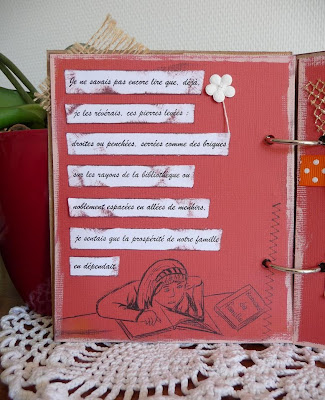 Je ne savais pas encore lire que, déjà,
je les révérais, ces pierres levées :
droites ou penchées, serrées comme des briques
sur les rayons de la bibliothèque ou
noblement espacées en allées de menhirs,
je sentais que la prospérité de notre famille
en dépendait.